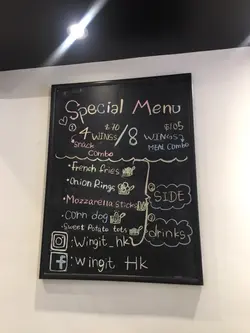 Special Menu
① $70 $105
4 WINGS / 8 WINGS
Snack Combo MEAL Combo
• French fries
• Onion Rings
• Mozzarella sticks
• Corn dog
• Sweet Potato tots
1 SIDE
drinks
: Wingit_hk
: Wingit Hk